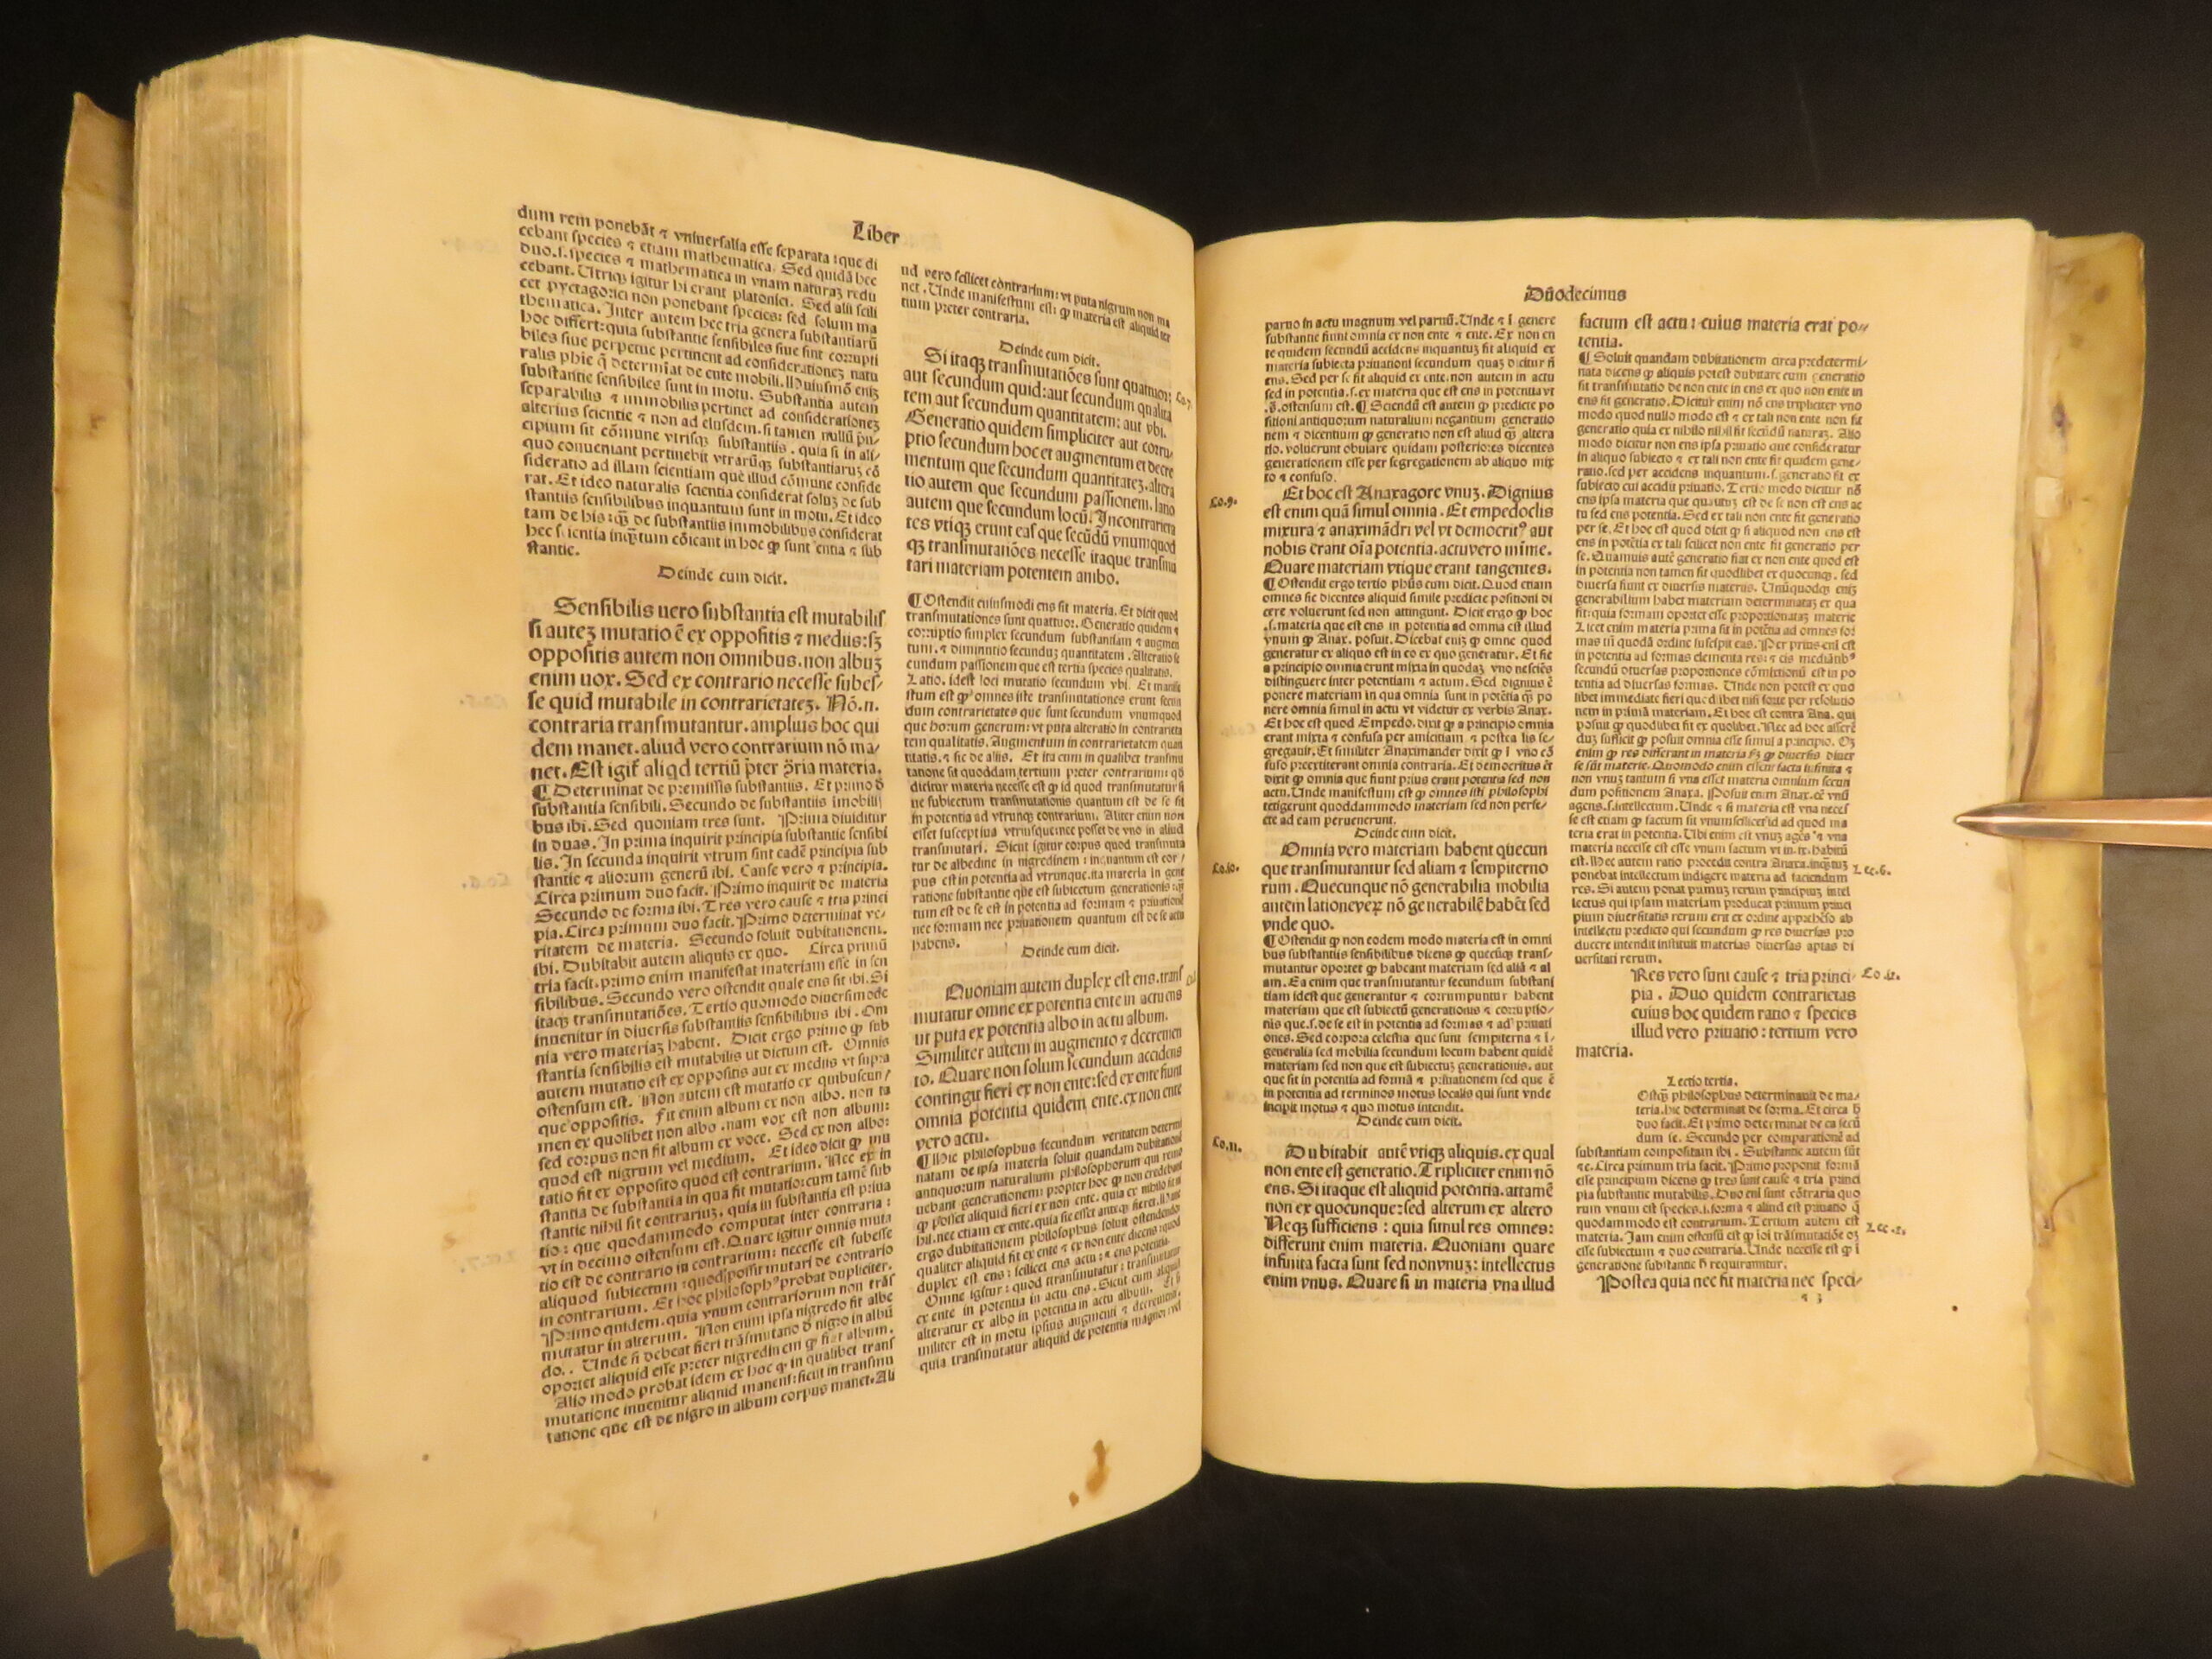 Liber
dum rem ponebāt ⁊ vniuersalia esse separata : que di
cebant species ⁊ etiam mathematica. Sed quidā hec
duo.s.species ⁊ mathematica in vnam naturaʒ redu
cebant. Utriqʒ igitur hi erant platonici. Sed alii scili
cet pyctagorici non ponebant species: sed solum ma
thematica. Inter autem hec tria genera substantiarū
hoc differt: quia substantie sensibiles siue sint corrupti
biles siue perpetue pertinent ad considerationeʒ natu
ralis phie q̄ determīat de ente mobili. Huiusmō eniʒ
substantie sensibiles sunt in motu. Substantia autem
separabilis ⁊ immobilis pertinet ad considerationeʒ
alterius scientie ⁊ non ad eiusdem. si tamen nullū prī-
cipium sit cōmune vtrisqʒ substantiis. quia si in ali-
quo conueniant pertinebit vtrarūqʒ substantiaruʒ cō
sideratio ad illam scientiam que illud cōmune conside
rat. Et ideo naturalis scientia considerat soluʒ de sub
stantiis sensibilibus inquantum sunt in motu. Et ideo
tam de his: qʒ̄ de substantiis immobilibus considerat
hec scientia inqʒ̄tum cōicant in hoc ꝙ sunt entia ⁊ sub
stantie.
Deinde cum dicit.
Sensibilis uero substantia est mutabilis
si auteʒ mutatio ē ex oppositis ⁊ mediis: sʒ
oppositis autem non omnibus. non albuʒ
enim uox. Sed ex contrario necesse subes-
se quid mutabile in contrarietateʒ. Nō.n.
contraria transmutantur. amplius hoc qui
dem manet. aliud vero contrarium nō ma-
net. Est igit̄ aliqd tertiū p̄ter ꝯ̄ria materia.
¶ Determinat de premissis substantiis. Et primo d̄
substantia sensibili. Secundo de substantiis imobili
bus ibi. Sed quoniam tres sunt. Prima diuiditur
in duas. In prima inquirit principia substantie sensibi
lis. In secunda inquirit vtrum sint eadē principia sub
stantie ⁊ aliorum generū ibi. Cause vero ⁊ principia.
Circa primum duo facit. Primo inquirit de materia
Secundo de forma ibi. Tres vero cause ⁊ tria princi
pia. Circa primum duo facit. Primo determinat ve-
ritatem de materia. Secundo soluit dubitationem.
ibi. Dubitabit autem aliquis ex quo. Circa primū
tria facit. primo enim manifestat materiam esse in sen
sibilibus. Secundo vero ostendit quale ens sit ibi. Si
itaqʒ transmutatiōes. Tertio quomodo diuersimode
inuenitur in diuersis substantiis sensibilibus ibi. Om
nia vero materiaʒ habent. Dicit ergo primo ꝙ sub
stantia sensibilis est mutabilis ut dictum est. Omnis
autem mutatio est ex oppositis aut ex mediis vt supra
ostensum est. Non autem est mutatio ex quibuscun-
que oppositis. Fit enim album ex non albo. non ta
men ex quolibet non albo. nam vox est non album:
sed corpus non fit album ex voce. Sed ex non albo:
quod est nigrum vel medium. Et ideo dicit ꝙ mu
tatio fit ex opposito quod est contrarium. Nec ex in
stantia de substantia in qua fit mutatio: cum tamē sub
stantie nihil sit contrariuʒ, quia in substantia est priua
tio: que quodammodo computat inter contraria:
vt in decimo ostensum est. Quare igitur omnis muta
tio est de contrario in contrarium: necesse est subesse
aliquod subiectum: quod possit mutari de contrario
in contrarium. Et hoc philosoph⁹ probat dupliciter.
Primo quidem. quia vnum contrariorum non trās
mutatur in alterum. Non enim ipsa nigredo fit albe
do. Unde si debeat fieri trāsmutatio d̄ nigro in albū
oportet aliquid esse preter nigredinem ꝙ fiat album.
Alio modo probat idem ex hoc ꝙ in qualibet trans
mutatione inuenitur aliquid manens: sicut in transmu
tatione que est de nigro in album corpus manet. Ali
ud vero scilicet cōntrarium: vt puta nigrum non ma
net. Unde manifestum est: ꝙ materia est aliquid ter
tium preter contraria.
Deinde cum dicit.
Si itaqʒ transmutatiōes sunt quattuor:
aut secundum quid: aut secundum qualita
tem aut secundum quantitatem: aut vbi.
Generatio quidem simpliciter aut corru-
ptio secundum hoc et augmentum et decre
mentum que secundum quantitateʒ. altera
tio autem que secundum passionem. latio
autem que secundum locū. In contrarieta
tes vtiqʒ erunt eas que secūdū vnumquod
qʒ transmutatiōes necesse itaque transmu
tari materiam potentem ambo.
¶ Ostendit cuiusmodi ens sit materia. Et dicit quod
transmutationes sunt quattuor. Generatio quidem ⁊
corruptio simplex secundum substantiam ⁊ augmen
tum. ⁊ diminutio secunduʒ quantitatem. Alteratio se
cundum passionem que est tertia species qualitatis.
Latio. idest loci mutatio secundum vbi. Et manife
stum est ꝙ omnes iste transmutationes erunt secun
dum contrarietates que sunt secundum vnumquod
que horum generum: vt puta alteratio in contrarieta
tem qualitatis. Augmentum in contrarietatem quan
titatis. ⁊ sic de aliis. Et ita cum in qualibet transmu
tatione sit quoddam tertium preter contrarium: qd̄
dicitur materia necesse est ꝙ id quod transmutatur si
ue subiectum transmutationis quantum est de se sit
in potentia ad vtrunqʒ contrarium. Aliter enim non
esset susceptiua vtriusque: nec posset de vno in aliud
transmutari. Sicut igitur corpus quod transmuta
tur de albedine in nigredinem: inquantum est cor-
pus est in potentia ad vtrunque. ita materia in gene
ratione substantie que est subiectum generationis: qʒ̄
tum est de se est in potentia ad formam ⁊ priuationē
nec formam nec priuationem quantum est de se actu
habens.
Deinde cum dicit.
Quoniam autem duplex est ens. trans
mutatur omne ex potentia ente in actu ens
ut puta ex potentia albo in actu album.
Similiter autem in augmento ⁊ decremen
to. Quare non solum secundum accidens
contingit fieri ex non ente: sed ex ente fiunt
omnia potentia quidem ente. ex non ente
vero actu.
¶ Hic philosophus secundum veritatem determi
natam de ipsa materia soluit quandam dubitationē
antiquorum naturalium philosophorum qui remo
uebant generationem: propter hoc ꝙ non credebant
ꝙ posset aliquid fieri ex non ente. quia ex nihilo fit ni
hil. nec etiam ex ente. quia sic esset anteqʒ fieret.
ergo dubitationem philosophus soluit ostendendo
qualiter aliquid fit ex ente ⁊ ex non ente dicens: quod
duplex est ens: scilicet ens actu: ⁊ ens potentia.
Omne igitur: quod transmutatur: transmutatur
ex ente in potentia in actu ens. Sicut cum aliquid
alteratur ex albo in potentia in actu album. Et si
militer est in motu ipsius augmenti ⁊ decrementi.
quia transmutatur aliquid de potentia magno: vel
Co.7.
Duodecimus
paruo in actu magnum vel paruū. Unde ⁊ ī genere
substantie fiunt omnia ex non ente ⁊ ente. Ex non en
te quidem secundū accidens inquantuʒ fit aliquid ex
materia subiecta priuationi secundum quaʒ dicitur n̄
ens. Sed per se fit aliquid ex ente. non autem in actu
sed in potentia .s. ex materia que est ens in potentia vt
.s̄. ostensum est. ¶ Sciendū est autem ꝙ predicte po
sitioni antiquorum naturalium negantium generatio
nem ⁊ dicentium ꝙ generatio non est aliud qʒ̄ altera
tio. voluerunt obuiare quidam posteriores dicentes
generationem esse per segregationem ab aliquo mix
to ⁊ confuso.
Co.9.
Et hoc est Anaxagore vnuʒ. Dignius
est enim quā simul omnia. Et empedoclis
mixtura ⁊ anaximādri vel vt democrit⁹ aut
nobis erant oīa potentia. actu vero mīme.
Quare materiam vtique erant tangentes.
¶ Ostendit ergo tertio phūs cum dicit. Quod etiam
omnes sic dicentes aliquid simile predicte positioni di
cere voluerunt sed non attingunt. Dicit ergo ꝙ hoc
.s. materia que est ens in potentia ad omnia est illud
vnum ꝙ Anax. posuit. Dicebat eniʒ ꝙ omne quod
generatur ex aliquo est in eo ex quo generatur. Et sic
a principio omnia erunt mixta in quodaʒ vno nesciēs
distinguere inter potentiam ⁊ actum. Sed dignius ē
ponere materiam in qua omnia sunt in potētia qʒ̄ po
nere omnia simul in actu vt videtur ex verbis Anax.
Et hoc est quod Empedo. dixit ꝙ a principio omnia
erant mixta ⁊ confusa per amicitiam ⁊ postea lis se-
gregauit. Et similiter Anaximander dixit ꝙ ī vno cō
fuso preextiterant omnia contraria. Et democritus ēt
dixit ꝙ omnia que fiunt prius erant potentia sed non
actu. Unde manifestum est ꝙ omnes isti philosophi
tetigerunt quoddammodo materiam sed non perfe-
cte ad eam peruenerunt.
Deinde cum dicit.
Co.10.
Omnia vero materiam habent quecun
que transmutantur sed aliam ⁊ sempiterno
rum. Quecunque nō generabilia mobilia
autem latione veꝝ nō generabilē habēt sed
vnde quo.
¶ Ostendit ꝙ non eodem modo materia est in omni
bus substantiis sensibilibus dicens ꝙ quecūqʒ trans-
mutantur oportet ꝙ habeant materiam sed aliā ⁊ al
am. Ea enim que transmutantur secundum substanti
tiam idest que generantur ⁊ corrumpuntur habent
materiam que est subiectū generationis ⁊ corruptio-
nis que .s. de se est in potentia ad formas ⁊ ad priuati
ones. Sed corpora celestia que sunt sempiterna ⁊ ī-
generalia sed mobilia secundum locum habent quidē
materiam sed non que est subiectuʒ generationis. aut
que sit in potentia ad formā ⁊ priuationem sed que ē
in potentia ad terminos motus localis qui sunt vnde
incipit motus ⁊ quo motus intendit.
Deinde cum dicit.
Co.11.
Dubitabit autē vtiqʒ aliquis. ex qual
non ente est generatio. Tripliciter enim nō
ens. Si itaque est aliquid potentia. attamē
non ex quocunque: sed alterum ex altero
Neqʒ sufficiens: quia simul res omnes:
differunt enim materia. Quoniam quare
infinita facta sunt sed non vnuʒ: intellectus
enim vnus. Quare si in materia vna illud
factum est actu: cuius materia erat po-
tentia.
¶ Soluit quandam dubitationem circa predetermi-
nata dicens ꝙ aliquis potest dubitare cum generatio
sit transmutatio de non ente in ens ex quo non ente in
ens sit generatio. Dicitur enim nō ens tripliciter vno
modo quod nullo modo est ⁊ ex tali non ente non fit
generatio quia ex nihilo nihil fit secūdū naturaʒ. Alio
modo dicitur non ens ipsa priuatio que consideratur
in aliquo subiecto ⁊ ex tali non ente fit quidem gene-
ratio. sed per accidens inquantum .s. generatio fit ex
subiecto cui accidit priuatio. Tertio modo dicitur nō
ens ipsa materia que quantuʒ est de se non est ens ac
tu sed ens potentia. Sed ex tali non ente fit generatio
per se. Et hoc est quod dicit ꝙ si aliquod non ens est
ens in potētia ex tali scilicet non ente fit generatio per
se. Quamuis autē generatio fiat ex non ente quod est
in potentia non tamen fit quodlibet ex quocunqʒ. sed
diuersa fiunt ex diuersis materiis. Unūquodqʒ eniʒ
generabilium habet materiam determinataʒ ex qua
fit: quia formam oportet esse proportionataʒ materie
Licet enim materia prima sit in potētia ad omnes for
mas tn̄ quodā ordine suscipit eas. Per prius enī est
in potentia ad formas elementares: ⁊ eis mediātib⁹
secundū diuersas proportiones cōmixtionū est in po
tentia ad diuersas formas. Unde non potest ex quo
libet immediate fieri quodlibet nisi forte per resolutio
nem in primā materiam. Et hoc est contra Ana. qui
posuit ꝙ quodlibet fit ex quolibet. Nec ad hoc asserē
duʒ sufficit ꝙ posuit omnia esse simul a principio. Oʒ
enim ꝙ res differant in materia sʒ ꝙ diuersis diuer
se sūt materie. Quomodo enim essent facta infinita ⁊
non vnuʒ tantum si vna esset materia omnium secun
dum positionem Anaxa. Posuit enim Anax. eē vnū
agens .s. intellectum. Unde ⁊ si materia est vna neces
se est etiam ꝙ factum sit vnum scilicet id ad quod ma
teria erat in potentia. Ubi enim est vnuʒ agēs ⁊ vna
materia necesse est esse vnum factum vt in .ix. habitū
est. Nec autem ratio procedit contra Anaxa. inqʒ̄tuʒ
ponebat intellectum indigere materia ad faciendum
res. Si autem ponat primuʒ rerum principiuʒ intel
lectus qui ipsam materiam producat primum princi
pium diuersitatis rerum erit ex ordine apprehēso ab
intellectu predicto qui secundum ꝙ res diuersas pro
ducere intendit instituit materias diuersas aptas di
uersitati rerum.
Lec.6.
Co.12.
Res vero sunt cause ⁊ tria princi-
pia. Duo quidem contrarietas
cuius hoc quidem ratio ⁊ species
illud vero priuatio: tertium vero
materia.
Lectio tertia.
Ostqʒ philosophus determinauit de ma-
teria. hic determinat de forma. Et circa h̄
duo facit. Et primo determinat de ea secū
dum se. Secundo per comparationē ad
substantiam compositam ibi. Substantie autem sūt
⁊c. Circa primum tria facit. Primo proponit formā
esse principium dicens ꝙ tres sunt cause ⁊ tria princi
pia substantie mutabilis. Duo enī sunt cōtraria quo
rum vnum est species .i. forma ⁊ aliud est priuatio ꝙ
quodammodo est contrarium. Tertium autem est
materia. Iam enim ostensū est ꝙ ī oī trāsmutatiōe oʒ
esse subiectum ⁊ duo contraria. Unde necesse est ꝙ ī
generatione substantie h̄ requirantur.
Postea quia nec fit materia nec speci-
⁊ 3